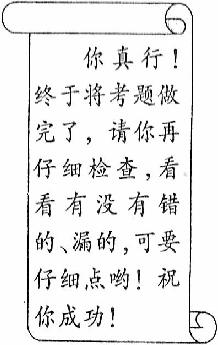 你真行！
终于将考题做
完了，请你再
仔细检查，看
看有没有错
的、漏的，可要
仔细点哟！祝
你成功！